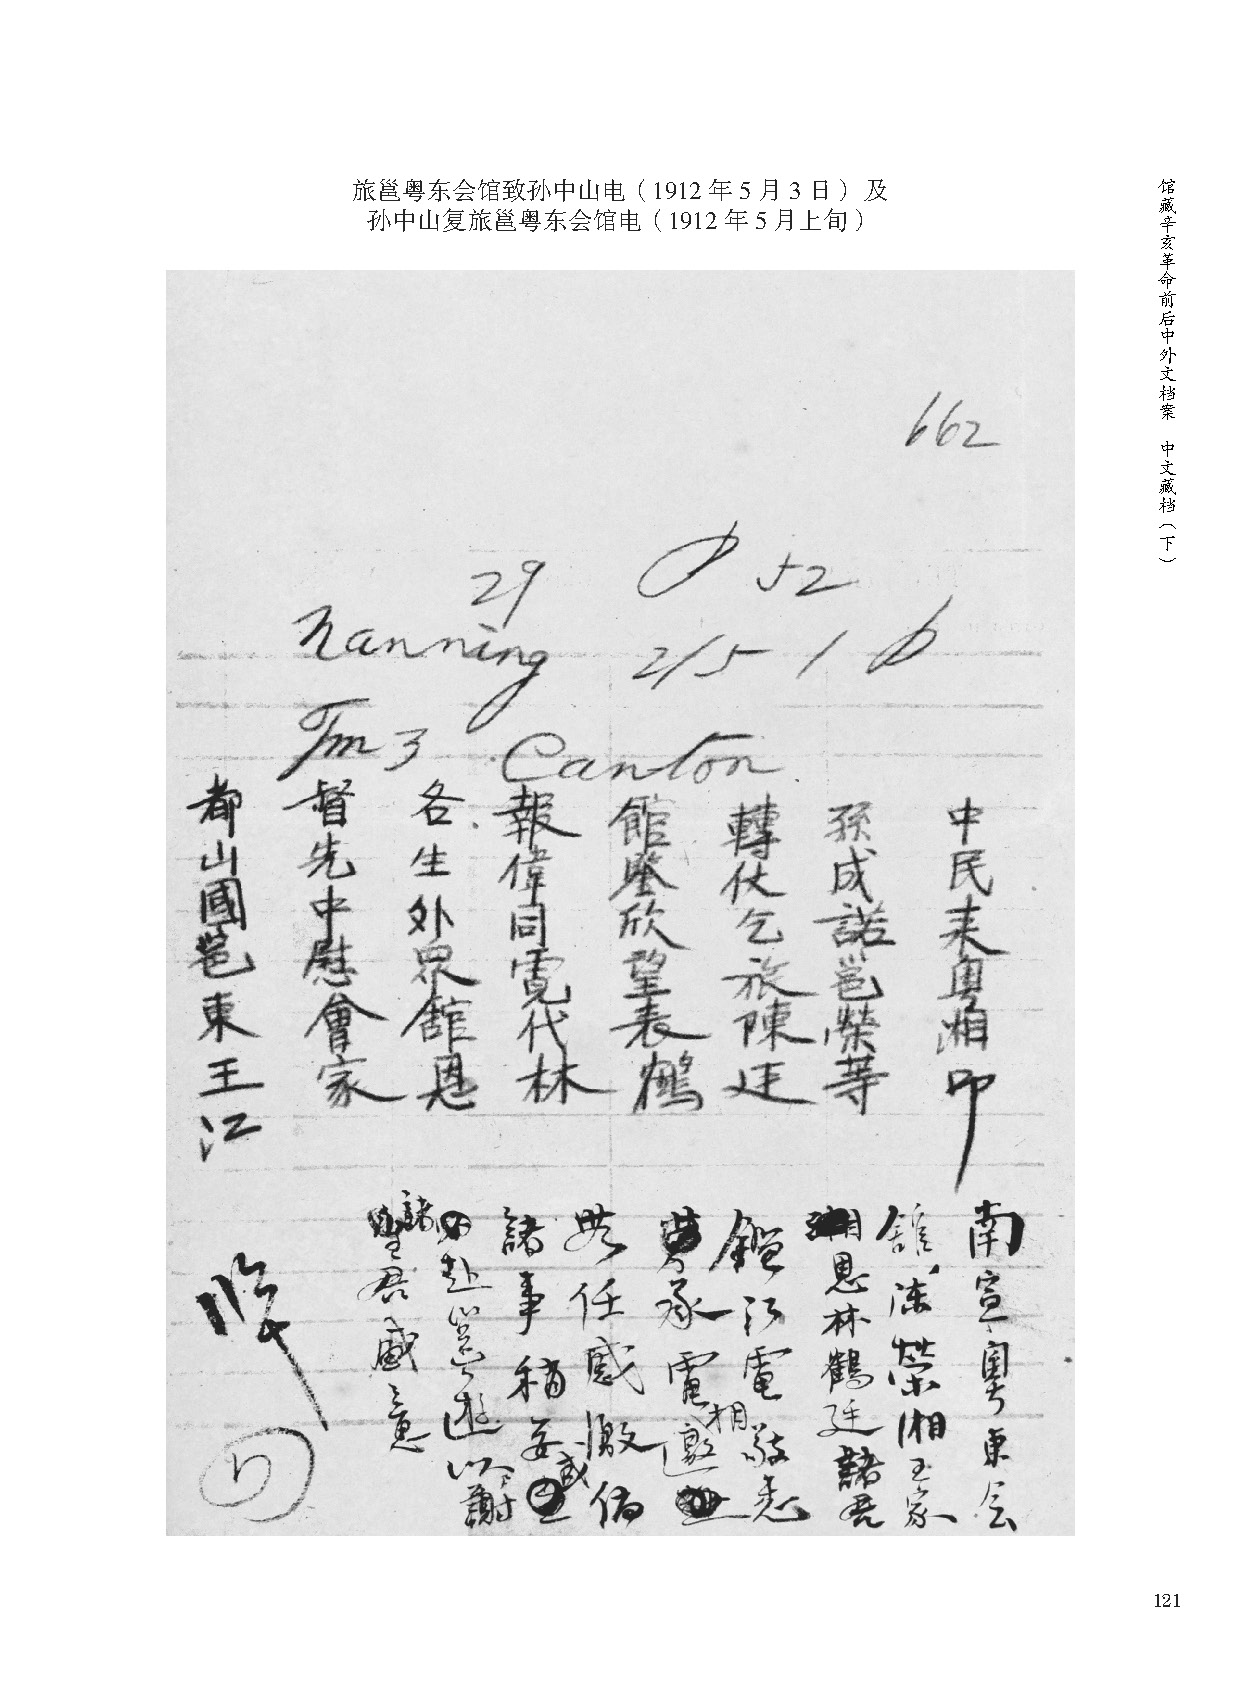 旅邕粤东会馆致孙中山电（1912 年 5 月 3 日）及
孙中山复旅邕粤东会馆电（1912 年 5 月上旬）
馆藏辛亥革命前后中外文档案 中文藏档（下）
662
29 52
Nanning 2/5 1
Tm 3 Canton
都督各報館轉孫中
山先生偉鑒仗成民
國中外同欣乞諾来
邕慰眾霓望旅邕粵
東會館代表陳榮湘
王家恩林鶴廷等叩
江
南寧粵東会
舘陳榮湘王家
恩林鶴廷諸君
鑑江電敬悉
承電相邀
無任感激俟
諸事稍妥
即赴邕遊以謝
諸君盛意
121